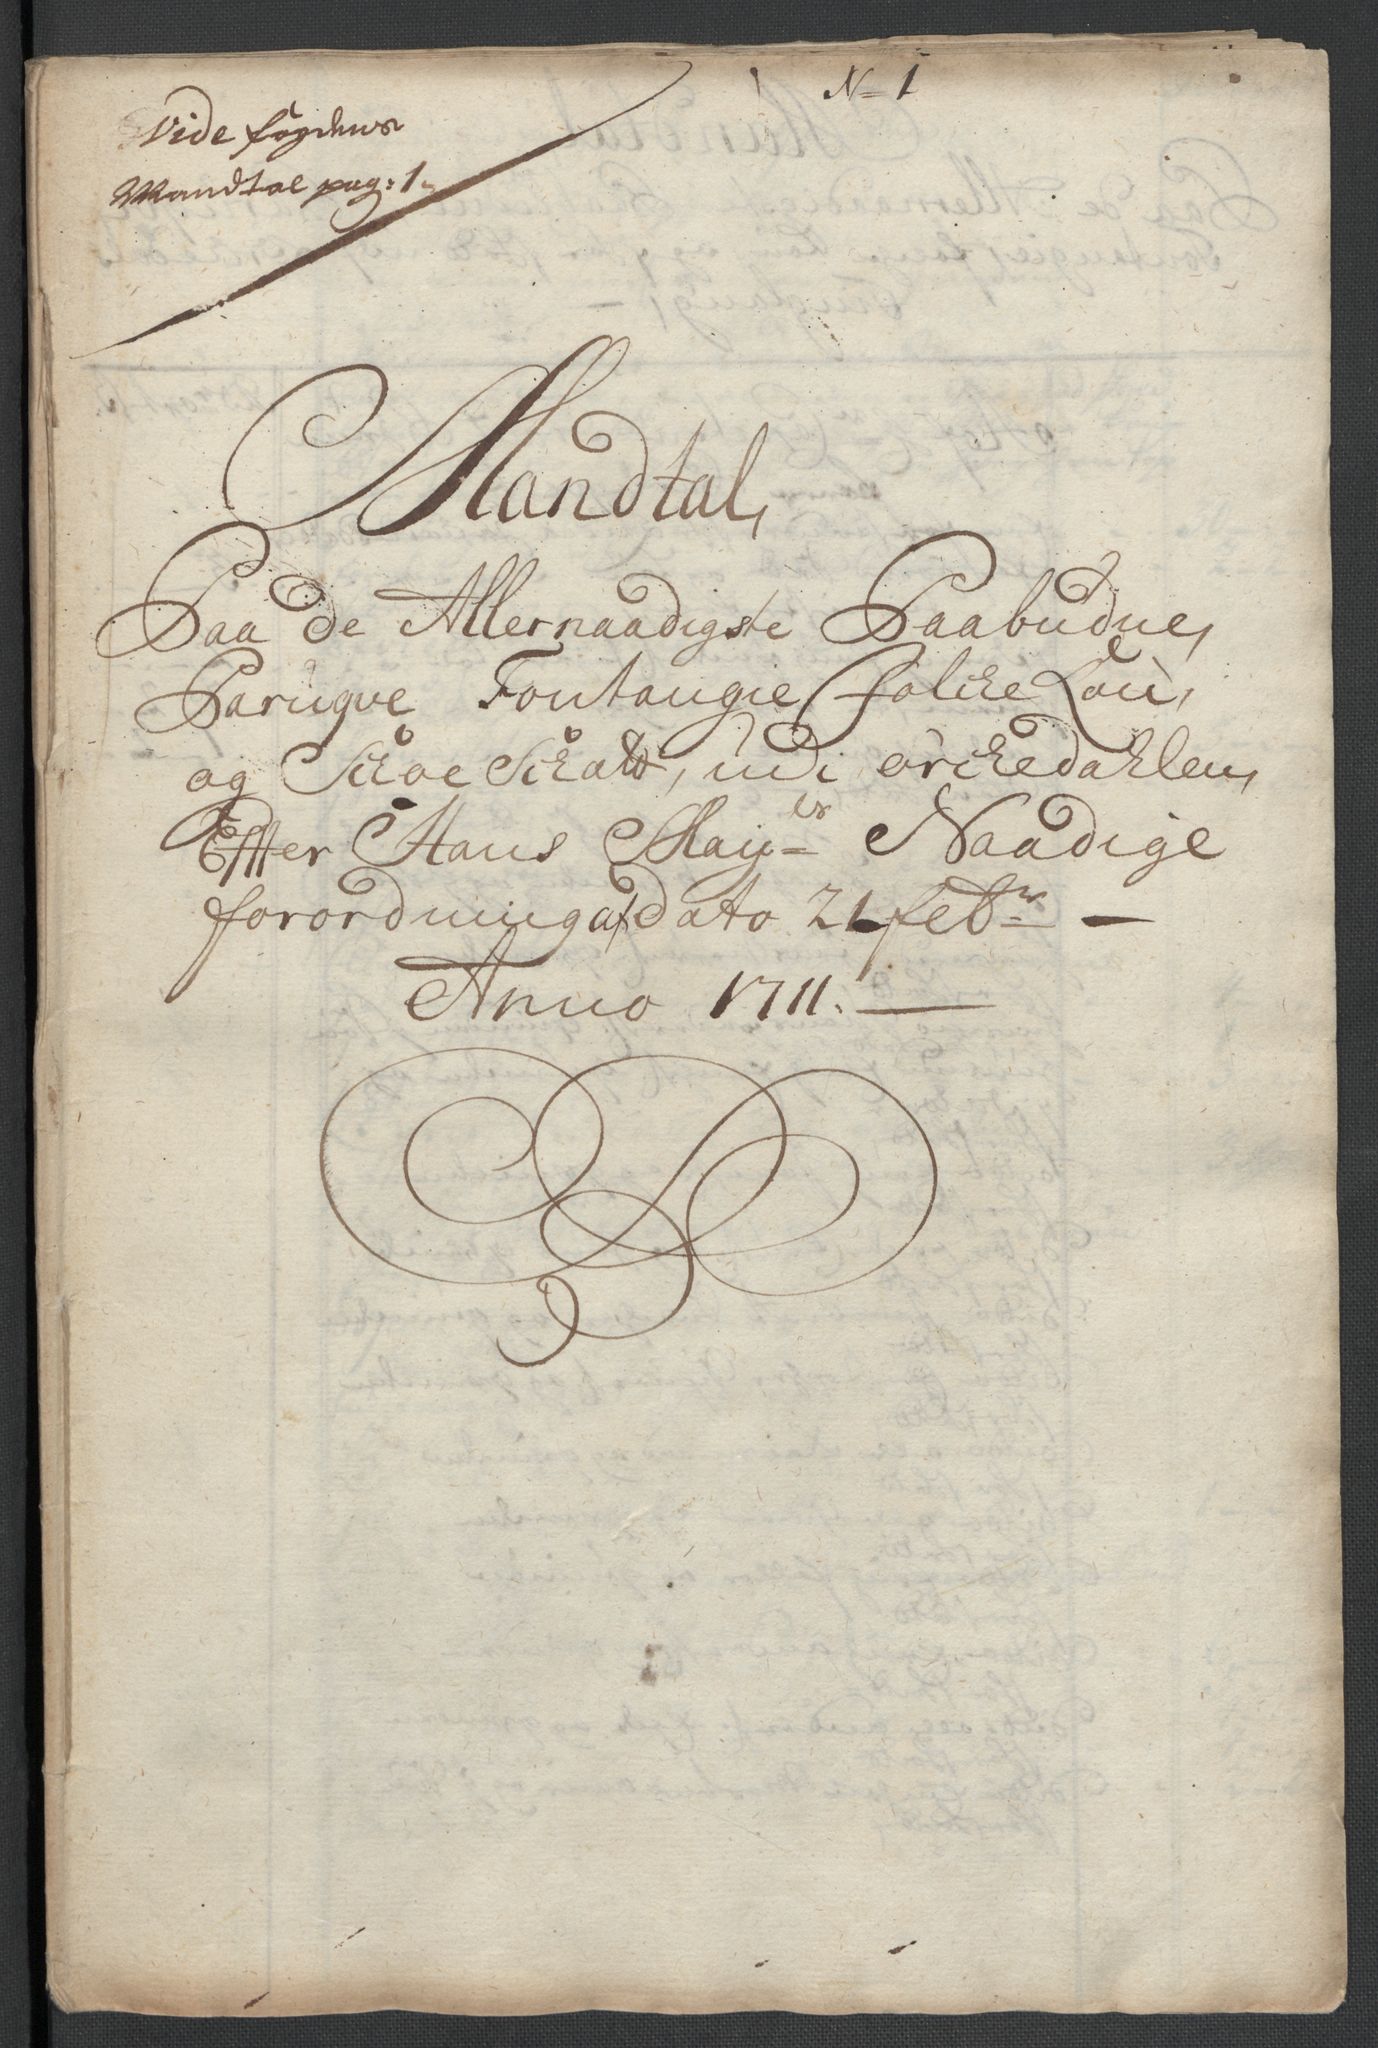 N= 1
Vide fogdens
Mandtal pag: 1.
Mandtal,
Paa de Allernaadigste Paabudne,
Paruqve Fontangie, folcke Lön,
og Skoe Skatt, udi örckedahlen,
Effter Hans May=ts Naadige
forordning af Dato 21 feb=r —
Anno 1711. —